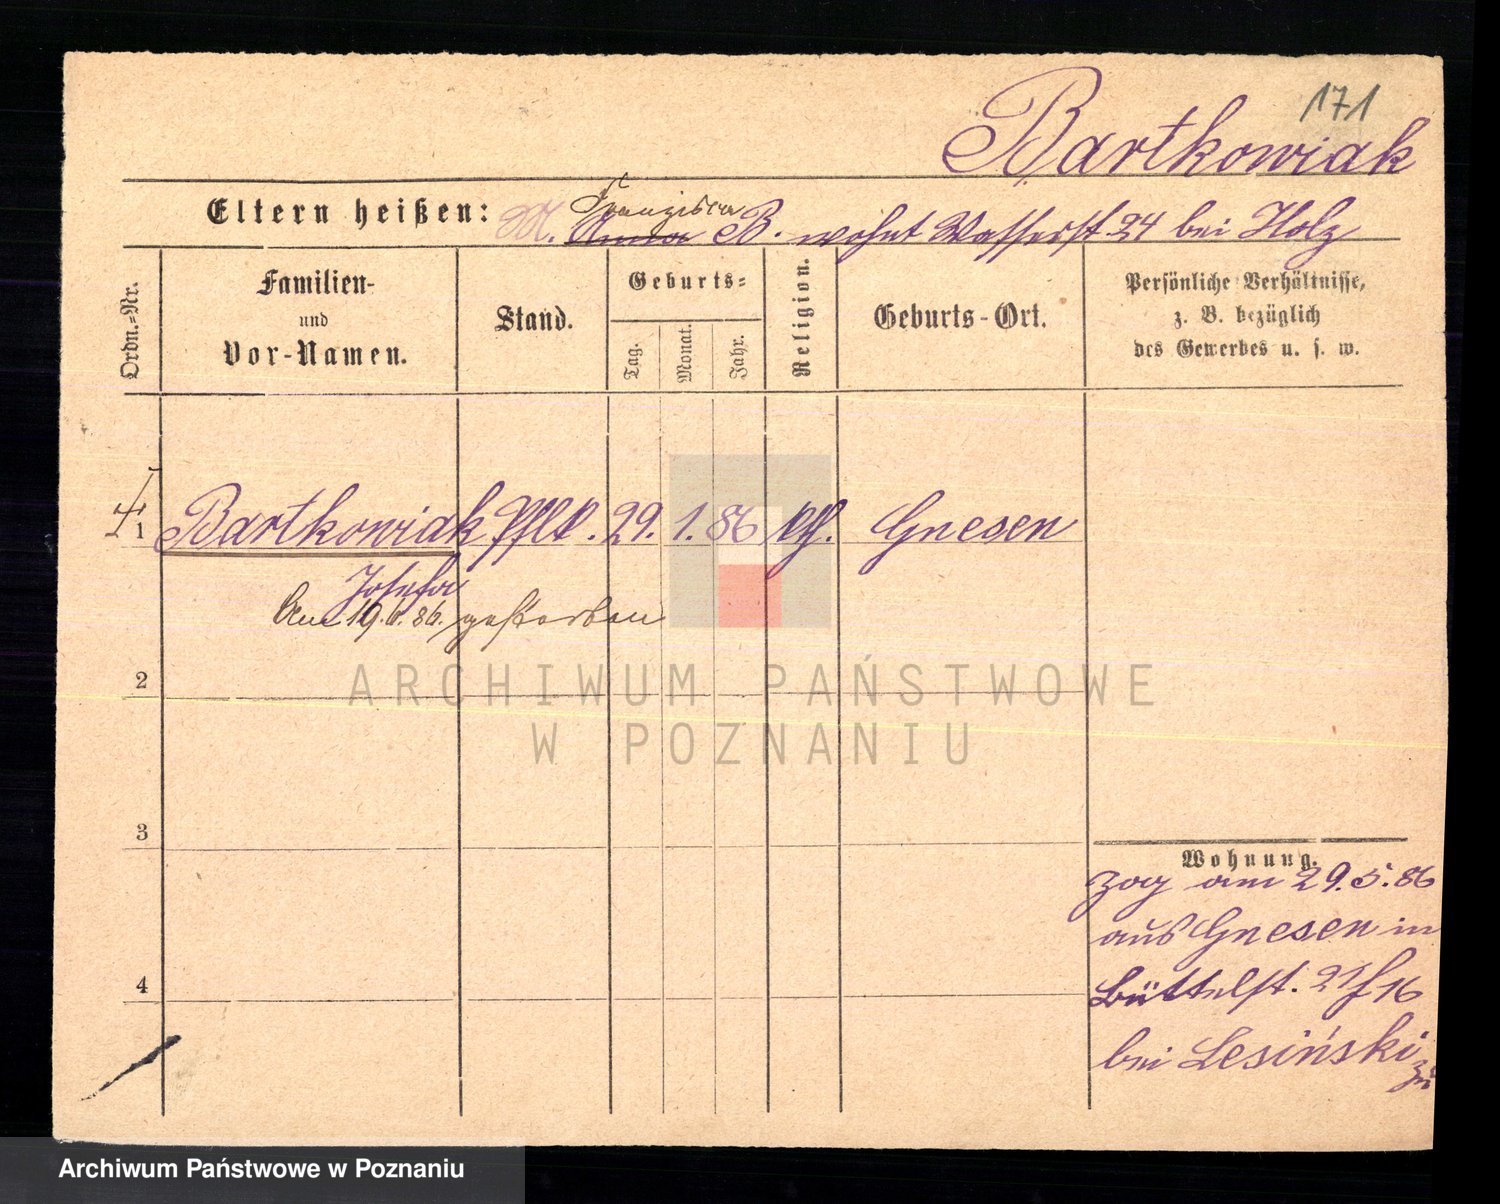 171
Bartkowiak
Eltern heißen: M. Anna Franziska B. wohnt Wasserst 24 bei Holz
Ordn.=Nr.
Familien-
und
Vor-Namen.
Stand.
Geburts=
Tag.
Monat.
Jahr.
Religion.
Geburts-Ort.
Persönliche Verhältnisse,
z. B. bezüglich
des Gewerbes u. s. w.
1 Bartkowiak Pflk. 29. 1. 86 kth. Gnesen
Josefa
Am 19.6.86. gestorben
2
3
4
Wohnung.
zog am 29.5.86
aus Gnesen in
Büttelst. 21/16
bei Lesiński
zu
ARCHIWUM PAŃSTWOWE
W POZNANIU
Archiwum Państwowe w Poznaniu